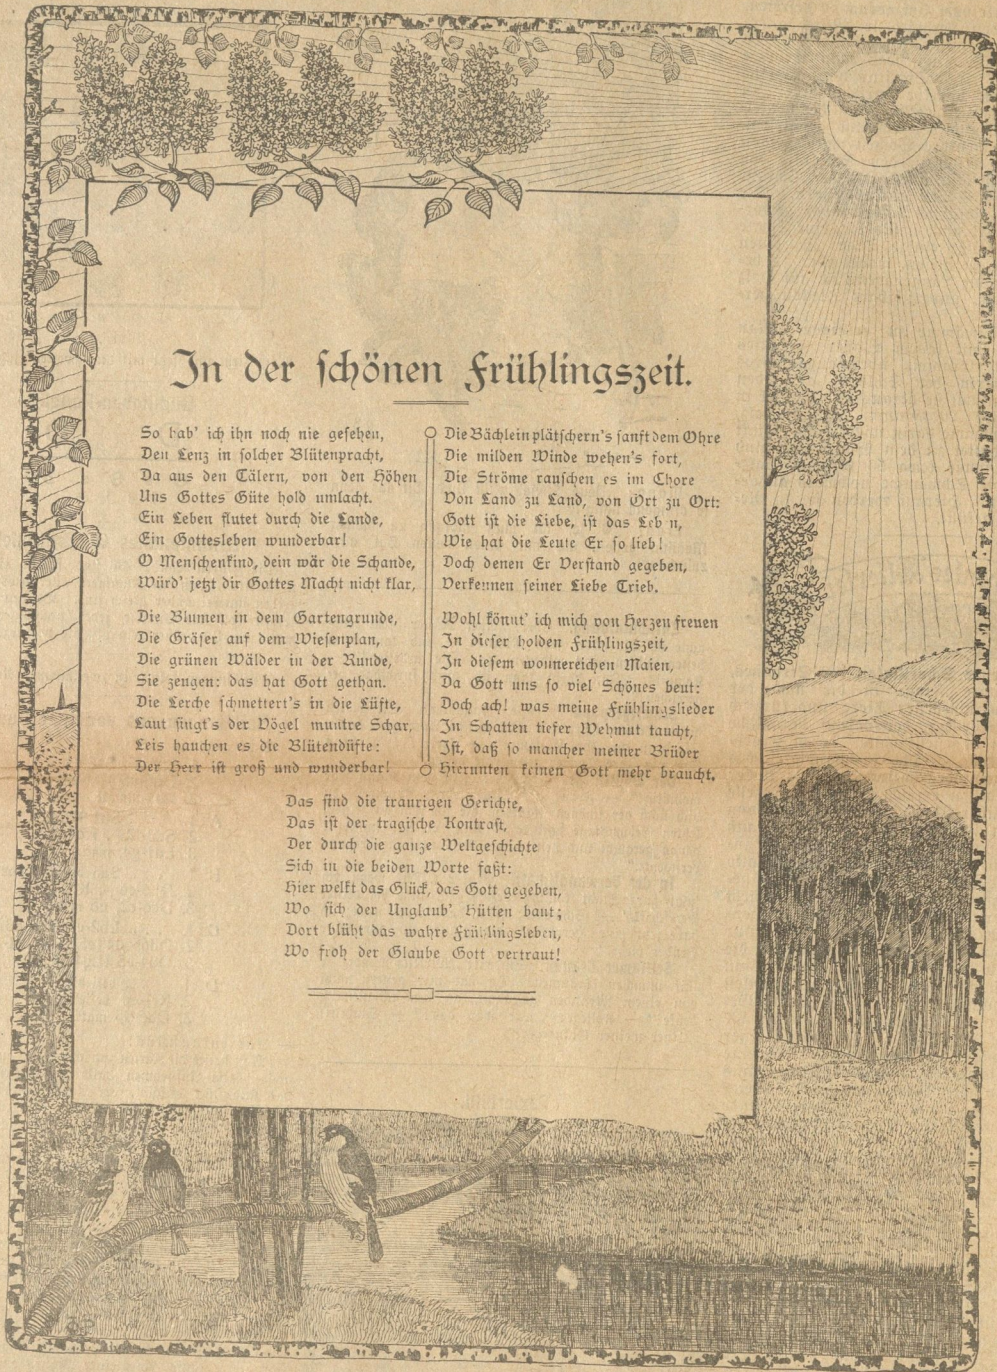 In der schönen Frühlingszeit.
So hab' ich ihn noch nie gesehen,
Den Lenz in solcher Blütenpracht,
Da aus den Tälern, von den Höhen
Uns Gottes Güte hold umlacht.
Ein Leben flutet durch die Lande,
Ein Gottesleben wunderbar!
O Menschenkind, dein wär die Schande,
Würd' jetzt dir Gottes Macht nicht klar,
Die Blumen in dem Gartengrunde,
Die Gräser auf dem Wiesenplan,
Die grünen Wälder in der Runde,
Sie zeugen: das hat Gott gethan.
Die Lerche schmettert's in die Lüfte,
Laut singt's der Vögel muntre Schar,
Leis hauchen es die Blütendüfte:
Der Herr ist groß und wunderbar!
Die Bächlein plätschern's sanft dem Ohre
Die milden Winde wehen's fort,
Die Ströme rauschen es im Chore
Von Land zu Land, von Ort zu Ort:
Gott ist die Liebe, ist das Leb n,
Wie hat die Leute Er so lieb!
Doch denen Er Verstand gegeben,
Verkennen seiner Liebe Trieb.
Wohl könnt' ich mich von Herzen freuen
In dieser holden Frühlingszeit,
In diesem wonnereichen Maien,
Da Gott uns so viel Schönes beut:
Doch ach! was meine Frühlingslieder
In Schatten tiefer Wehmut taucht,
Ist, daß so mancher meiner Brüder
Hierunten keinen Gott mehr braucht.
Das sind die traurigen Gerichte,
Das ist der tragische Kontrast,
Der durch die ganze Weltgeschichte
Sich in die beiden Worte faßt:
Hier welkt das Glück, das Gott gegeben,
Wo sich der Unglaub' Hütten baut;
Dort blüht das wahre Frühlingsleben,
Wo froh der Glaube Gott vertraut!